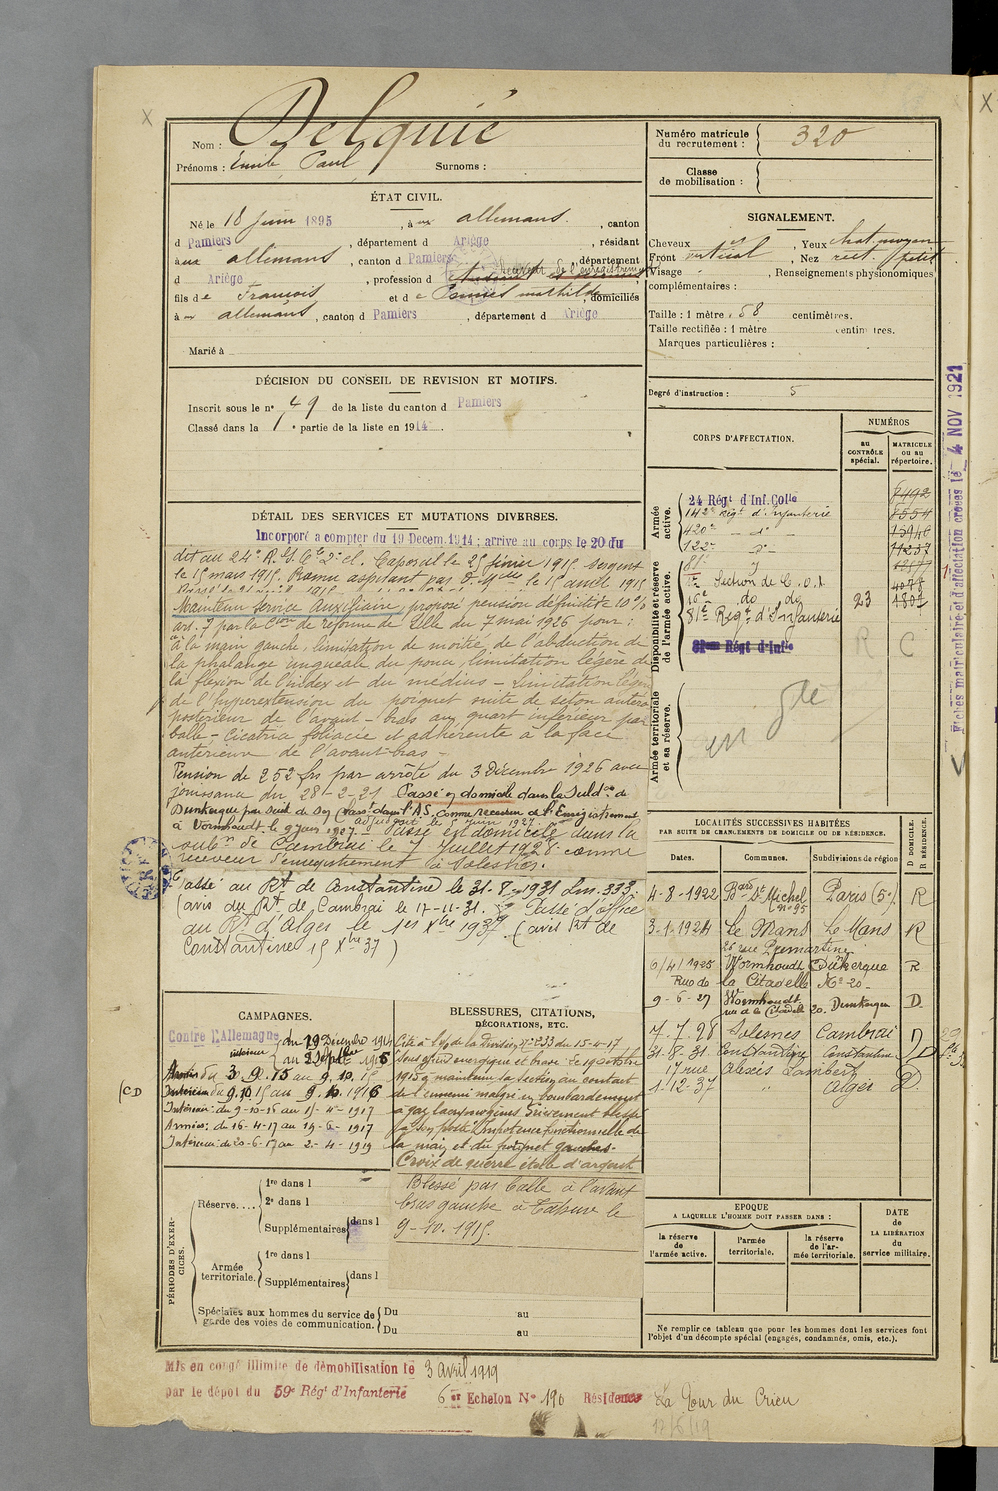 Nom : Delquié
Prénoms : Emile Paul Surnoms :
ÉTAT CIVIL.
Né le 18 Juin 1895, à ux allemans, canton
d Pamiers, département d Ariège, résidant
à ux allemans, canton d Pamiers, département
d Ariège, profession d Receveur de l'enregistrement
fils de François et de mathilde, domiciliés
à ux allemans, canton d Pamiers, département d Ariège
Marié à
DÉCISION DU CONSEIL DE REVISION ET MOTIFS.
Inscrit sous le n° 49 de la liste du canton d Pamiers
Classé dans la 1e partie de la liste en 1914.
DÉTAIL DES SERVICES ET MUTATIONS DIVERSES.
Incorporé a compter du 19 Decem. 1914; arrive au corps le 20 du
dit au 24e R. I. Cle 2e cl. Caporal le 25 février 1915. Sergent
le 15 mars 1915. Promu aspirant par le 15 avril 1915
Maintenu Service Auxiliaire, proposé pension définitive 10%
art. 7 par la Con de réforme de Lille du 7 mai 1926 pour :
à la main gauche, limitation de moitié de l'abduction de
la phalange unguéale du pouce, limitation légère de
la flexion de l'index et du médius - Limitation légère
de l'hyperextension du poignet suite de séton antéro
postérieur de l'avant-bras au quart inférieur par
balle - Cicatrice foliacée et adhérente à la face
antérieure de l'avant-bras -
Pension de 252 frs par arrêté du 3 Décembre 1926 avec
jouissance du 28-2-21 Passé en domicile dans la Subdon de
Dunkerque par suite de son class' dans l'A.S. comme receveur de l'Enregistrement
à Wormhoudt le 9 juin 1927 - Passé en domicile dans la
subon de Cambrai le 7 Juillet 1928 comme
receveur d'enregistrement à Solesmes.
Passé au Rt de Constantine le 31-8-1931 Lm. 333.
(avis du Rt de Cambrai le 17-11-31. Passé d'office
au Rt d'Alger le 1er Xbre 1937 (avis Rt de
Constantine 15 Xbre 37)
CAMPAGNES.
Contre l'Allemagne
intérieur du 19 Décembre 1914
au 2 Septbre 1915
Armées du 3.9.15 au 9.10.15
Intérieur du 9.10.15 au 9.10.1916
Intérieur: du 9-10-16 au 15-4-1917
Armées: du 16-4-17 au 19-6-1917
Intérieur: du 20-6-17 au 2-4-1919
CD
BLESSURES, CITATIONS,
DÉCORATIONS, ETC.
Cité à l'o/ de la Division n° 233 du 15-4-17
Sous officier énergique et brave. Le 9 octobre
1915 a maintenu la section au contact
de l'ennemi malgré un bombardement
à gaz lacrymogènes. Grièvement blessé
à son poste. Impotence fonctionnelle de
la main et du poignet gauches.
Croix de guerre étoile d'argent
Blessé par balle à l'avant
bras gauche à Tahure le
9-10-1915.
PÉRIODES D'EXERCICES.
Réserve....
1re dans l
2e dans l
Supplémentaires dans l
Armée territoriale.
1re dans l
Supplémentaires dans l
Spéciales aux hommes du service de garde des voies de communication.
Du au
Du au
Numéro matricule du recrutement : 320
Classe de mobilisation :
SIGNALEMENT.
Cheveux, Yeux chat. moyen
Front vertical, Nez rect. petit
Visage, Renseignements physionomiques
complémentaires :
Taille : 1 mètre, 68 centimètres.
Taille rectifiée : 1 mètre centimètres.
Marques particulières :
Degré d'instruction : 5
CORPS D'AFFECTATION.
NUMÉROS
au CONTRÔLE spécial.
MATRICULE ou au répertoire.
Armée active.
24 Régt d'Inf. Colle 8492
142e Régt d'Infanterie 8554
420e - do -
122e - do - 11237
Disponibilité et réserve de l'armée active.
81e
Section de C.O.A 4078
16e do do 23 1807
81e Régt d'Infanterie
81eme Régt d'Infie
R C
Armée territoriale et sa réserve.
Fiches matriculaire et d'affectation créées le 4 NOV 1921
LOCALITÉS SUCCESSIVES HABITÉES
PAR SUITE DE CHANGEMENTS DE DOMICILE OU DE RÉSIDENCE.
Dates. Communes. Subdivisions de région D DOMICILE. R RÉSIDENCE.
4-8-1922 Bard St Michel n° 95 Paris (5e) R
3-1-1924 Le Mans Le Mans R
26 rue Premartine
6/4/1925 Wormhoudt Dunkerque R
Rue de la Citadelle No 20-
9-6-27 Wormhoudt Dunkerque D
rue de la Citadelle 20.
7.7.28 Solesmes Cambrai D
31-8-31. Constantine Constantine D
17 rue Alexis Lambert
1-12-37 " Alger D
EPOQUE
A LAQUELLE L'HOMME DOIT PASSER DANS :
la réserve de l'armée active. l'armée territoriale. la réserve de l'armée territoriale.
DATE de LA LIBÉRATION du service militaire.
Ne remplir ce tableau que pour les hommes dont les services font
l'objet d'un décompte spécial (engagés, condamnés, omis, etc.).
Mis en congé illimité de démobilisation le 3 avril 1919
par le dépôt du 59e Régt d'Infanterie 6e Echelon No 190 Résidence La Tour du Crieu
12/5/19